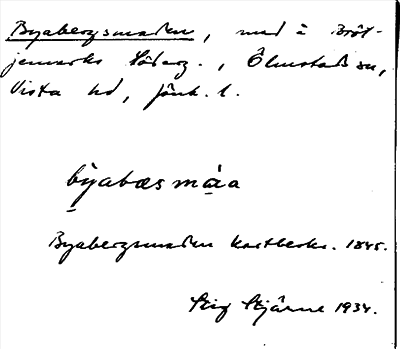 Byabergsmaden, mad å Bröt-
jemarks Söderg., Ölmstads sn,
Vista hd, Jönk. l.
bỳabæsmàa
Byabergsmaden kartbeskr. 1845.
Stig Stjärne 1934.